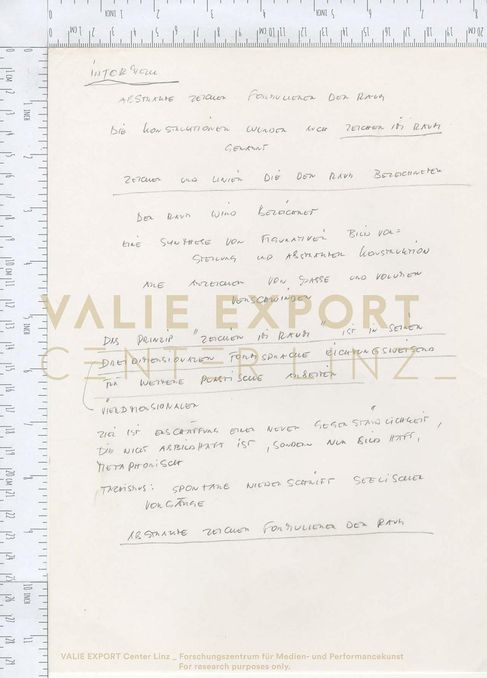 INTERVIEW
ABSTRAKTE ZEICHEN FORMULIEREN DEN RAUM
DIE KONSTRUKTIONEN WURDEN AUCH ZEICHEN IM RAUM
GENANNT
ZEICHEN UND LINIEN DIE DEN RAUM BEZEICHNETEN
DER RAUM WIRD BEZEICHNET
EINE SYNTHESE VON FIGURATIVER BILDVOR=
STELLUNG UND ABSTRAKTER KONSTRUKTION
ALLE ANZEICHEN VON MASSE UND VOLUMEN
VERSCHWINDEN
VALIE EXPORT
CENTER LINZ_
DAS PRINZIP "ZEICHEN IM RAUM" IST IN SEINER
DREIDIMENSIONALEN FORMSPRACHE RICHTUNGSWEISEND
FÜR WEITERE PLASTISCHE ARBEITEN
VIERDIMENSIONALEN
ZIEL IST ERSCHAFFUNG EINER NEUEN GEGENSTÄNDLICHKEIT,
DIE NICHT ABBILDHAFT IST, SONDERN NUR BILDHAFT,
METAPHORISCH
TACHISMUS: SPONTANE NIEDERSCHRIFT SEELISCHER
VORGÄNGE
ABSTRAKTE ZEICHEN FORMULIEREN DEN RAUM
VALIE EXPORT Center Linz _ Forschungszentrum für Medien- und Performancekunst
For research purposes only.